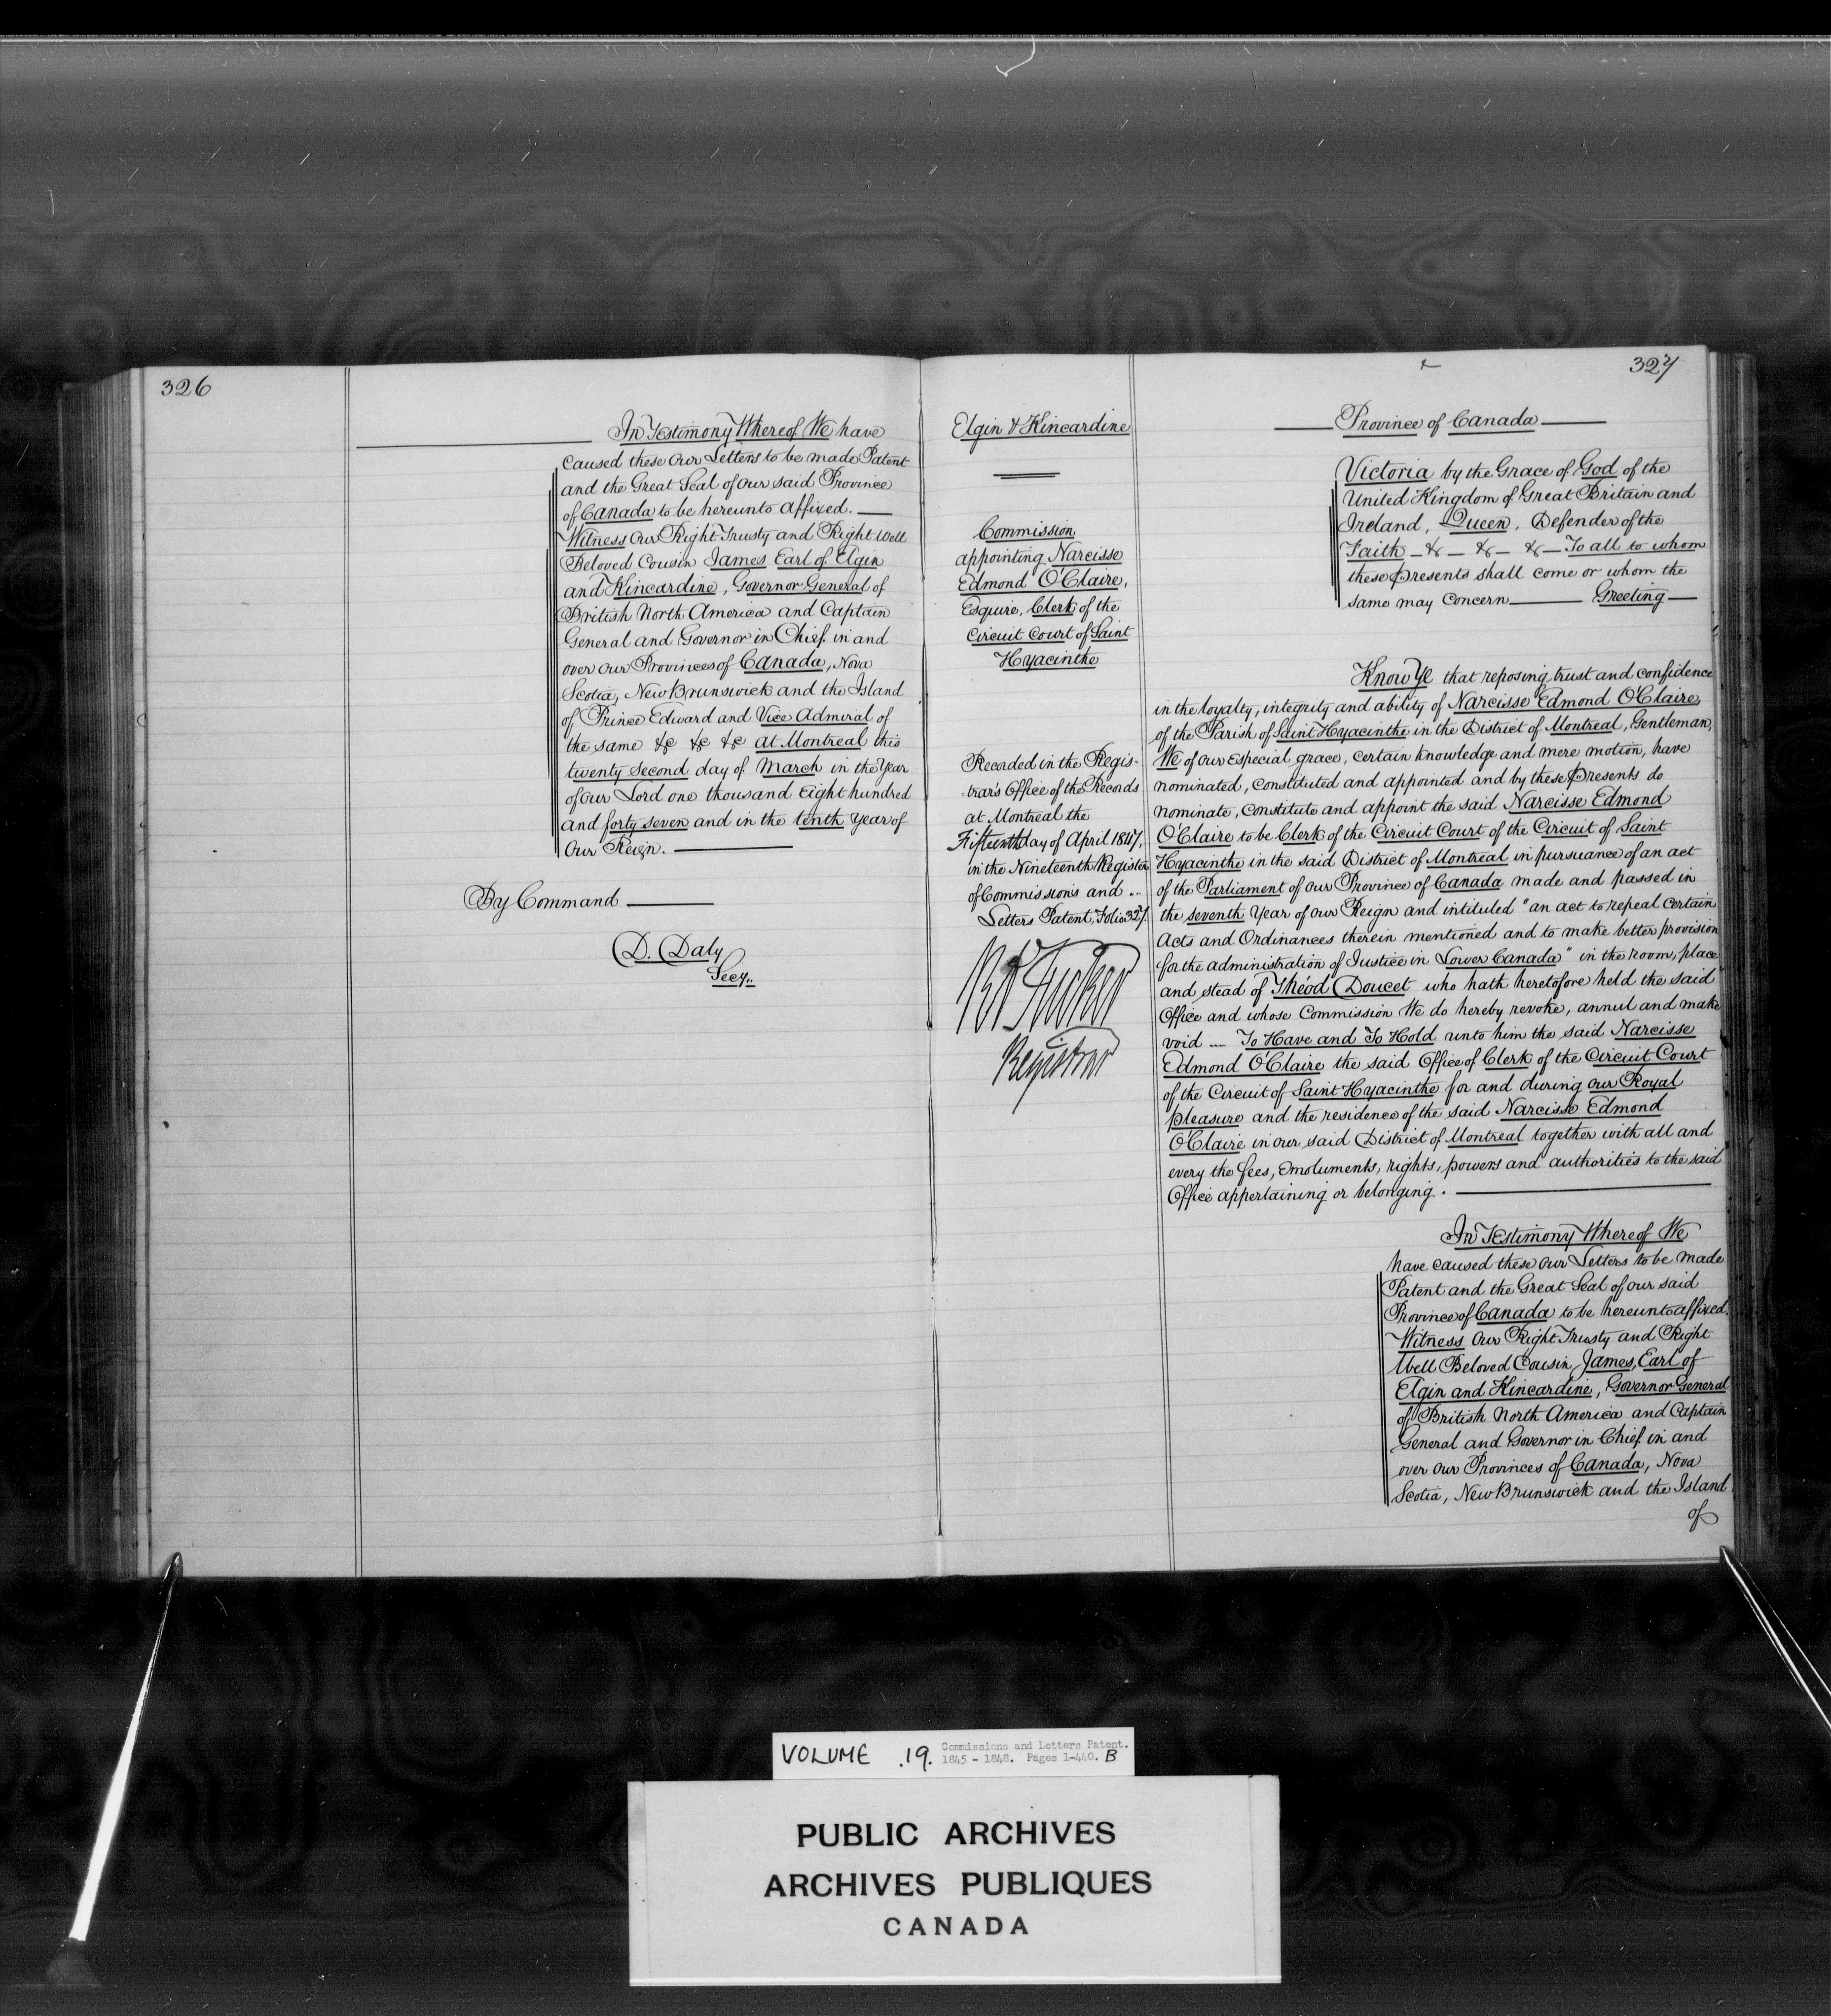 326
In Testimony Whereof We have
caused these Our Letters to be made Patent
and the Great Seal of our said Province
of Canada to be hereunto affixed.
Witness Our Right Trusty and Right Well
Beloved Cousin James Earl of Elgin
and Kincardine, Governor General of
British North America and Captain
General and Governor in Chief in and
over our Provinces of Canada, Nova
Scotia, New Brunswick and the Island
of Prince Edward and Vice Admiral of
the same &c &c &c at Montreal this
twenty second day of March in the Year
of our Lord one thousand Eight hundred
and forty seven and in the tenth Year of
Our Reign.
By Command
D. Daly
Secy..
Elgin & Kincardine
Commission
appointing Narcisse
Edmond O'Claire,
Esquire, Clerk of the
Circuit Court of Saint
Hyacinthe
Recorded in the Regis-
trar's Office of the Records
at Montreal the
Fifteenth day of April 1847,
in the Nineteenth Register
of Commissions and ...
Letters Patent, Folio 327.
Registrar
327
Province of Canada
Victoria by the Grace of God of the
United Kingdom of Great Britain and
Ireland, Queen, Defender of the
Faith _ & _ & _ & _ To all to whom
these Presents shall come or whom the
same may concern Greeting
Know Ye that reposing trust and confidence
in the loyalty, integrity and ability of Narcisse Edmond O'Claire,
of the Parish of Saint Hyacinthe in the District of Montreal, Gentleman,
We of our especial grace, certain knowledge and mere motion, have
nominated, constituted and appointed and by these Presents do
nominate, constitute and appoint the said Narcisse Edmond
O'Claire to be Clerk of the Circuit Court of the Circuit of Saint
Hyacinthe in the said District of Montreal in pursuance of an act
of the Parliament of our Province of Canada made and passed in
the seventh Year of our Reign and intituled "an act to repeal certain
Acts and Ordinances therein mentioned and to make better provision
for the administration of Justice in Lower Canada" in the room, place
and stead of Théod Doucet who hath heretofore held the said
Office and whose Commission We do hereby revoke, annul and make
void .... To Have and To Hold unto him the said Narcisse
Edmond O'Claire the said Office of Clerk of the Circuit Court
of the Circuit of Saint Hyacinthe for and during our Royal
pleasure and the residence of the said Narcisse Edmond
O'Claire in our said District of Montreal together with all and
every the fees, emoluments, rights, powers and authorities to the said
Office appertaining or belonging.
In Testimony Whereof We
have caused these our Letters to be made
Patent and the Great Seal of our said
Province of Canada to be hereunto affixed.
Witness Our Right Trusty and Right
Well Beloved Cousin, James, Earl of
Elgin and Kincardine, Governor General
of British North America and Captain
General and Governor in Chief in and
over our Provinces of Canada, Nova
Scotia, New Brunswick and the Island
of
VOLUME .19. Commissions and Letters Patent.
1845 - 1848. Pages 1-440. B
PUBLIC ARCHIVES
ARCHIVES PUBLIQUES
CANADA